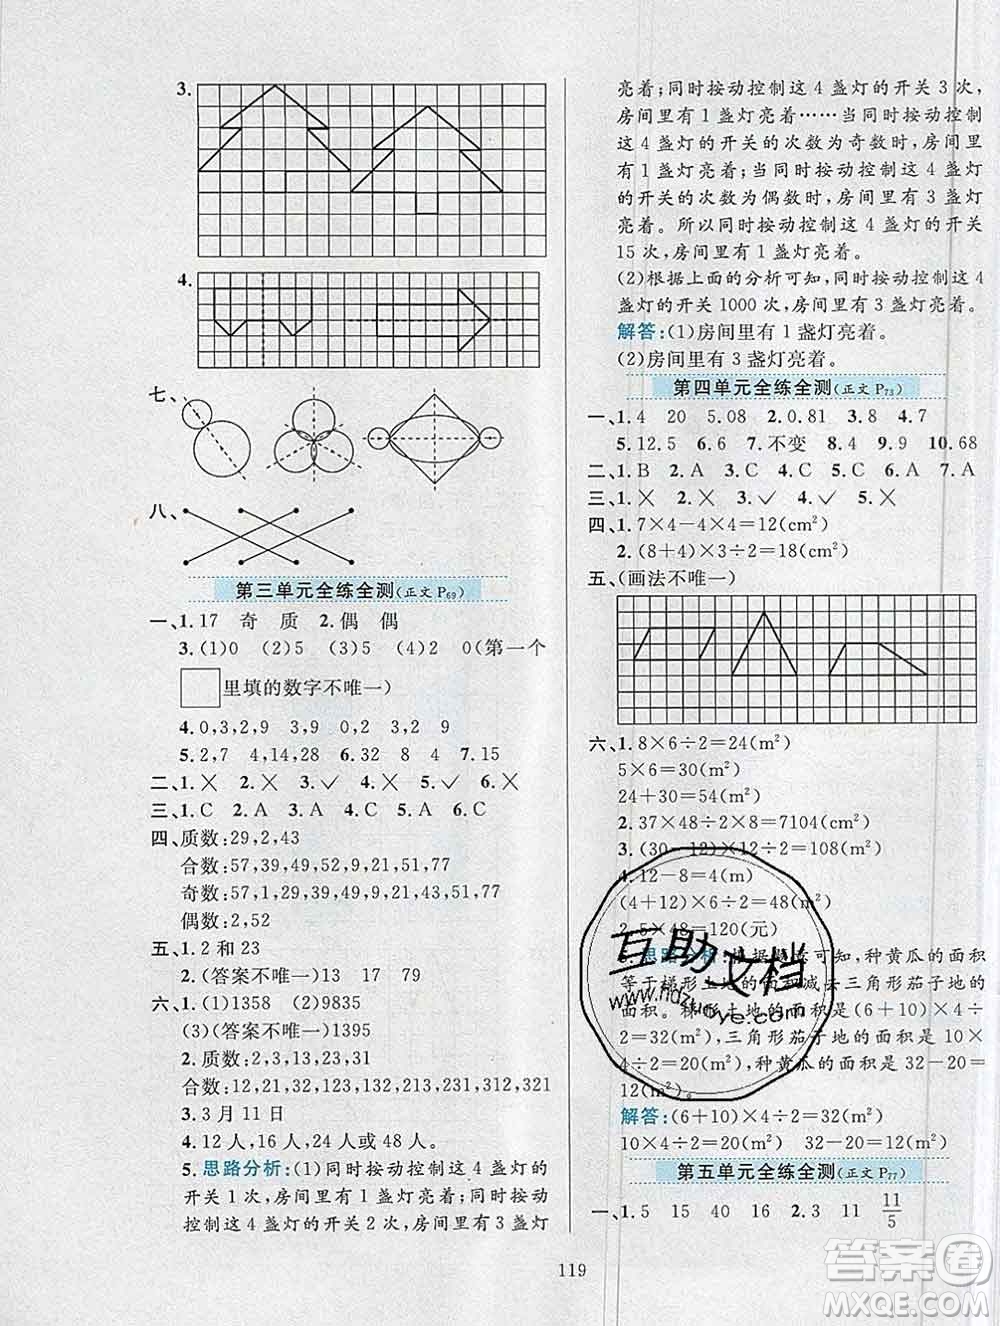 3.
4.
七、
八、
第三单元全练全测(正文 P69)
一、1.17 奇 质 2.偶 偶
3.(1)0 (2)5 (3)5 (4)2 0(第一个
里填的数字不唯一)
4.0,3,2,9 3,9 0,2 3,2 9
5.2,7 4,14,28 6.4 7.15
二、1.╳ 2.╳ 3.╳ 4.✓ 5.╳
三、1.C 2.A 3.A 4.C 5.A
四、质数:29,2,43
合数:57,39,49,52,9,21,51,77
奇数:57,1,29,39,49,9,21,43,51,77
偶数:2,52
五、1.2 和 23
2.(答案不唯一)13 17 79
六、1.(1)1358 (2)9835
(3)(答案不唯一)1395
2.质数:2,3,13,23,31
合数:12,21,32,123,132,213,231,312,321
3.3 月 11 日
4.12 人,16 人,24 人或 48 人。
5.思路分析:(1)同时按动控制这 4 盏灯的
开关 1 次,房间里有 1 盏灯亮着;同时按动
控制这 4 盏灯的开关 2 次,房间里有 3 盏灯
亮着;同时按动控制这 4 盏灯的开关 3 次,
房间里有 1 盏灯亮着……当同时按动控制
这 4 盏灯的开关的次数为奇数时,房间里
有 1 盏灯亮着;当同时按动控制这 4 盏灯
的开关的次数为偶数时,房间里有 3 盏灯
亮着。所以同时按动控制这 4 盏灯的开关
15 次,房间里有 1 盏灯亮着。
(2)根据上面的分析可知,同时按动控制这 4
盏灯的开关 1000 次,房间里有 3 盏灯亮着。
解答:(1)房间里有 1 盏灯亮着。
(2)房间里有 3 盏灯亮着。
第四单元全练全测(正文 P73)
一、1.4 20 5.08 2.0.81 3.8 4.7
5.12.5 6.6 7.不变 8.4 9.9 10.68
二、1.B 2.A 3.C 4.C 5.C 6.A 7.A
三、1.╳ 2.╳ 3.✓ 4.✓ 5.╳
四、1.7×4-4×4=12(cm²)
2.(8+4)×3÷2=18(cm²)
五、(画法不唯一)
六、1.8×6÷2=24(m²)
5×6=30(m²)
24+30=54(m²)
2.37×48÷2×8=7104(cm²)
3.(30-12)×12÷2=108(m²)
4.12-8=4(m)
(4+12)×6÷2=48(m²)
2.5×48=120(元)
5.思路分析:根据题意可知,种黄瓜的面积
等于梯形土地的面积减去三角形茄子地的
面积。梯形土地的面积是(6+10)×4÷
2=32(m²),三角形茄子地的面积是 10×
4÷2=20(m²),种黄瓜的面积是 32-20=
12(m²)。
解答:(6+10)×4÷2=32(m²)
10×4÷2=20(m²) 32-20=12(m²)
第五单元全练全测(正文 P77)
一、1.5 15 40 16 2.3 11 11/5
119
互助文档
www.hdzuoye.com
答案圈
MXQE.COM